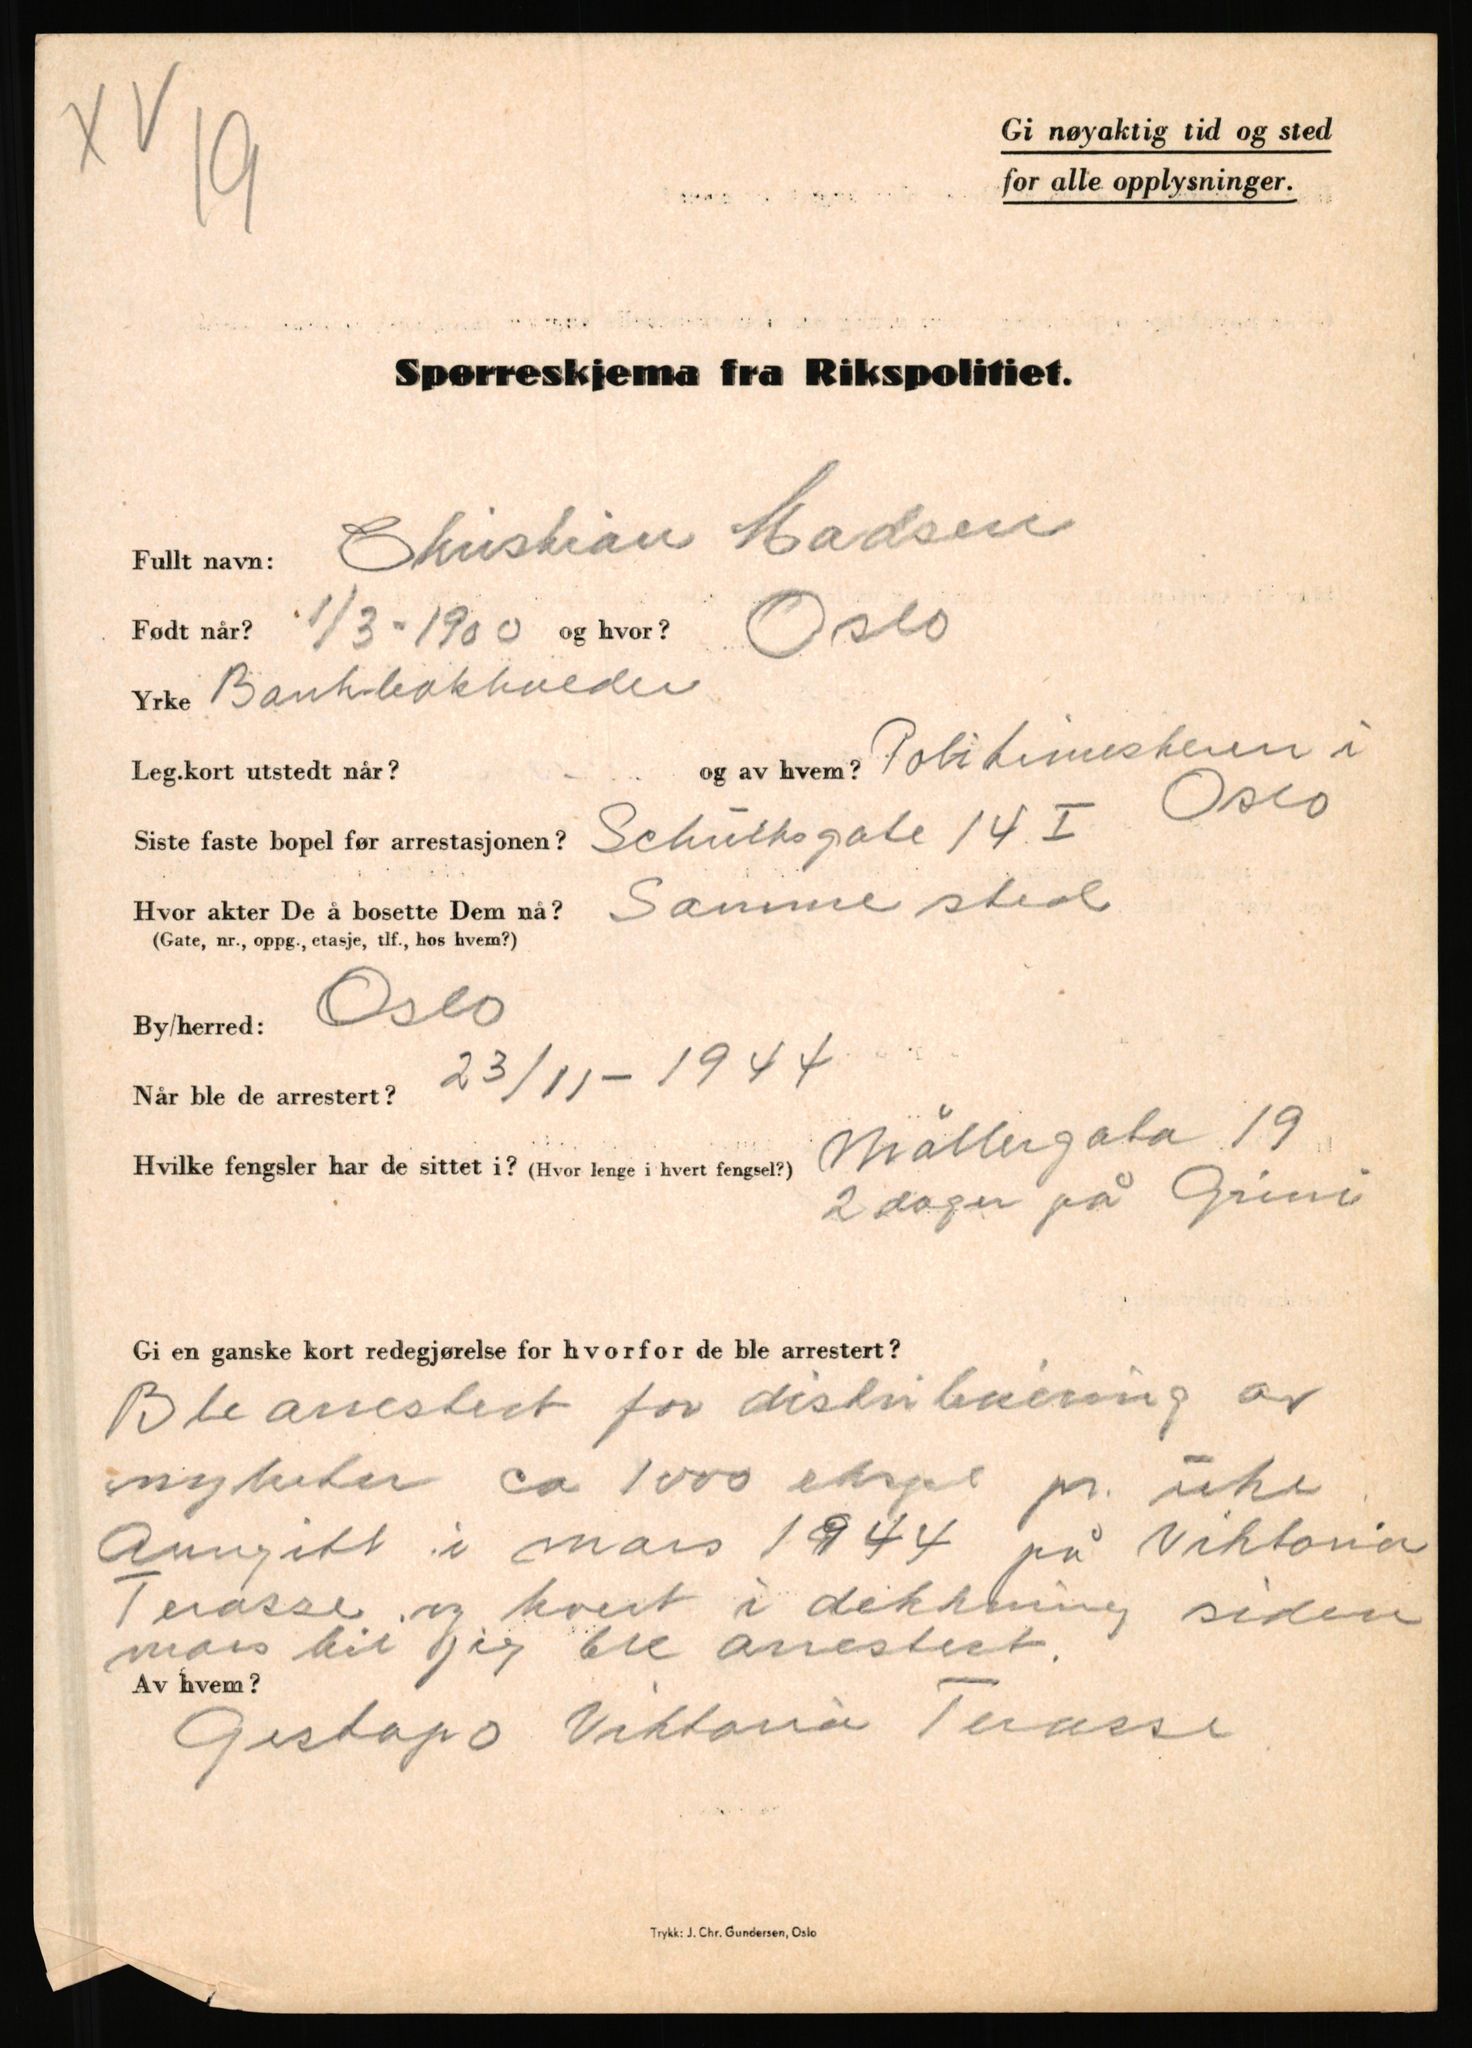 XV
19
Gi nøyaktig tid og sted
for alle opplysninger.
Spørreskjema fra Rikspolitiet.
Fullt navn: Christian Madsen
Født når? 1/3-1900 og hvor? Oslo
Yrke Bankbokholder
Leg.kort utstedt når? og av hvem? Politimesteren i
Oslo
Siste faste bopel før arrestasjonen? Schultzgate 14 I
Hvor akter De å bosette Dem nå? Samme sted
(Gate, nr., oppg., etasje, tlf., hos hvem?)
By/herred: Oslo
Når ble de arrestert? 23/11-1944
Hvilke fengsler har de sittet i? (Hvor lenge i hvert fengsel?) Møllergata 19
2 dager på Grini
Gi en ganske kort redegjørelse for hvorfor de ble arrestert?
Ble arrestert for distribuering av
nyheter ca 1000 ekspl pr. uke
Anngitt i mars 1944 på Viktoria
Terasse og hvert i dekkning siden
mars til jeg ble arrestert.
Av hvem?
Gestapo Viktoria Terasse
Trykk: J. Chr. Gundersen, Oslo